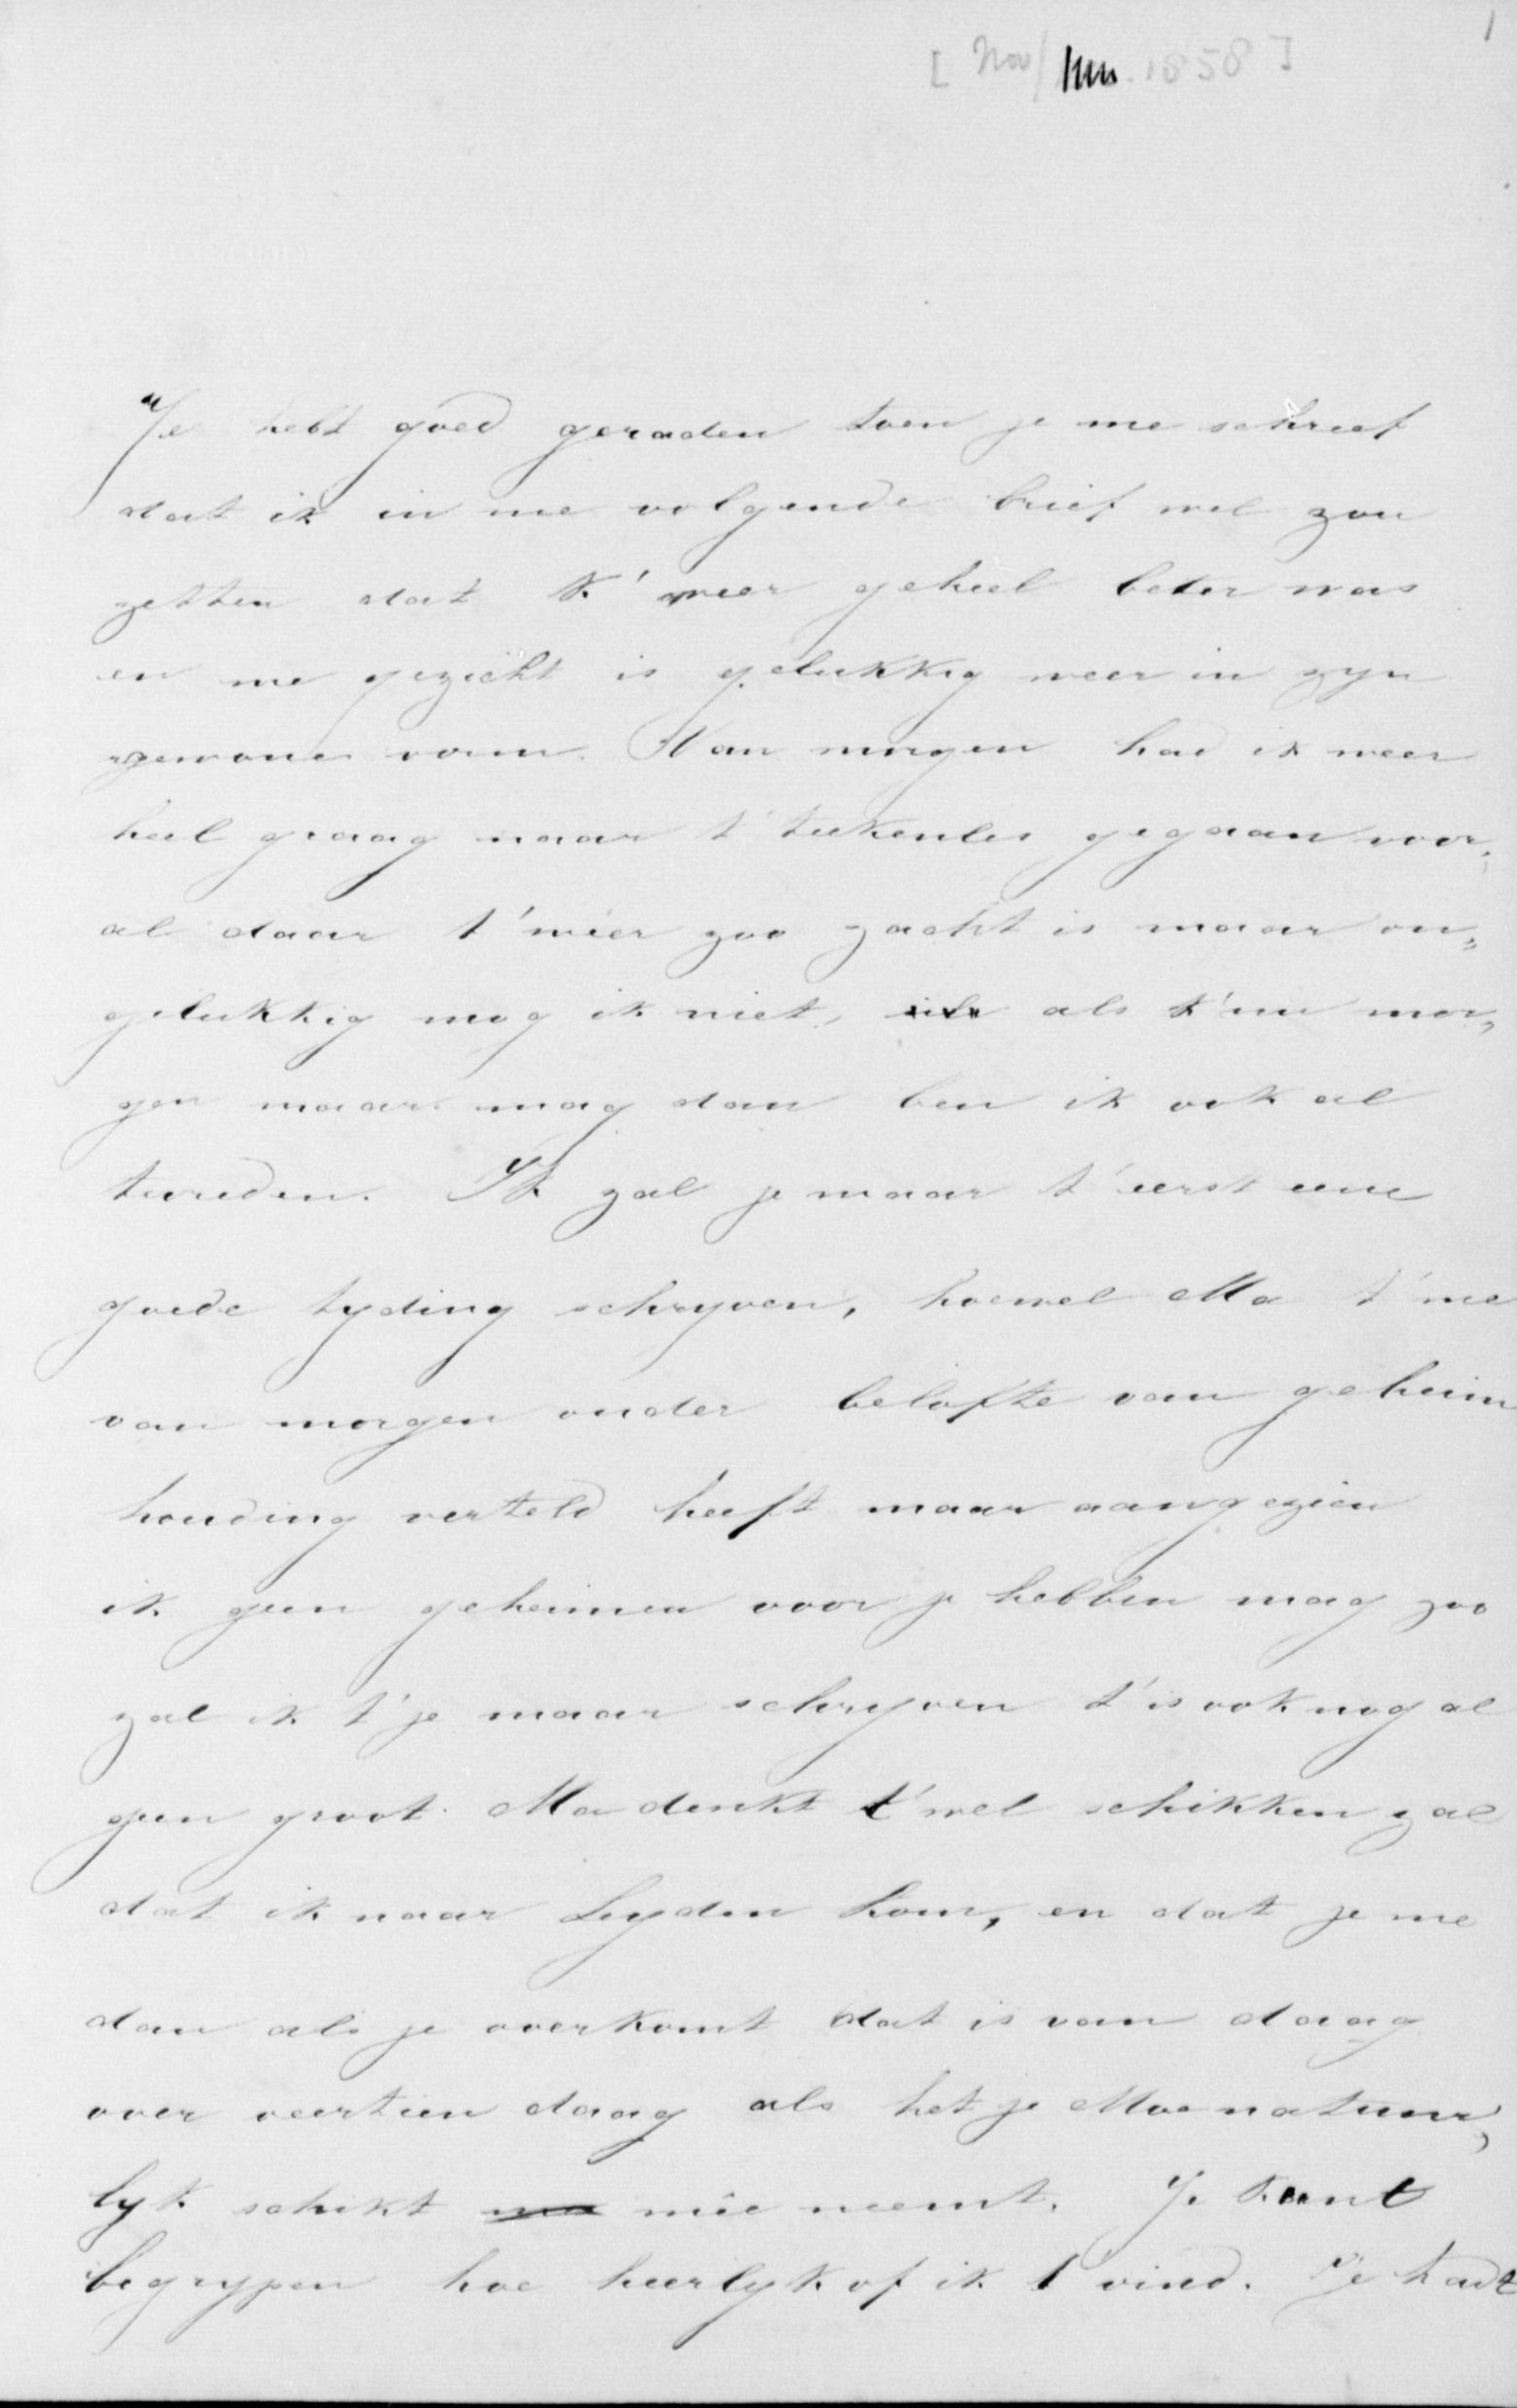 1
[Nov/ 1858]
Je hebt goed geraden toen je me schreef
dat ik in me volgende brief wel zou
zetten dat k' weer geheel beter was
en me gezicht is gelukkig weer in zyn
gewone vorm. Van morgen had ik weer
heel graag naar t' teekenles gegaan voor„
al daar t' weer zoo zacht is maar on„
gelukkig mog ik niet, als k' nu mor„
gen maar mag dan ben ik ook al
tevreden. Ik zal je maar t' eerst eene
goede tyding schryven, hoewel Ma t' me
van morgen onder belofte van geheim
houding verteld heeft maar aangezien
ik geen geheimen voor je hebben mag zoo
zal ik t' je maar schryven t' is ook nog al
geen groot. Ma denkt t' wel schikken zal
dat ik naar Leyden kom, en dat je me
dan als je overkomt dat is van daag
over veertien daag als het je Moe natuur„
lyk schikt mêe neemt. Je kunt
begrypen hoe heerlyk of ik t' vind. Je hadt